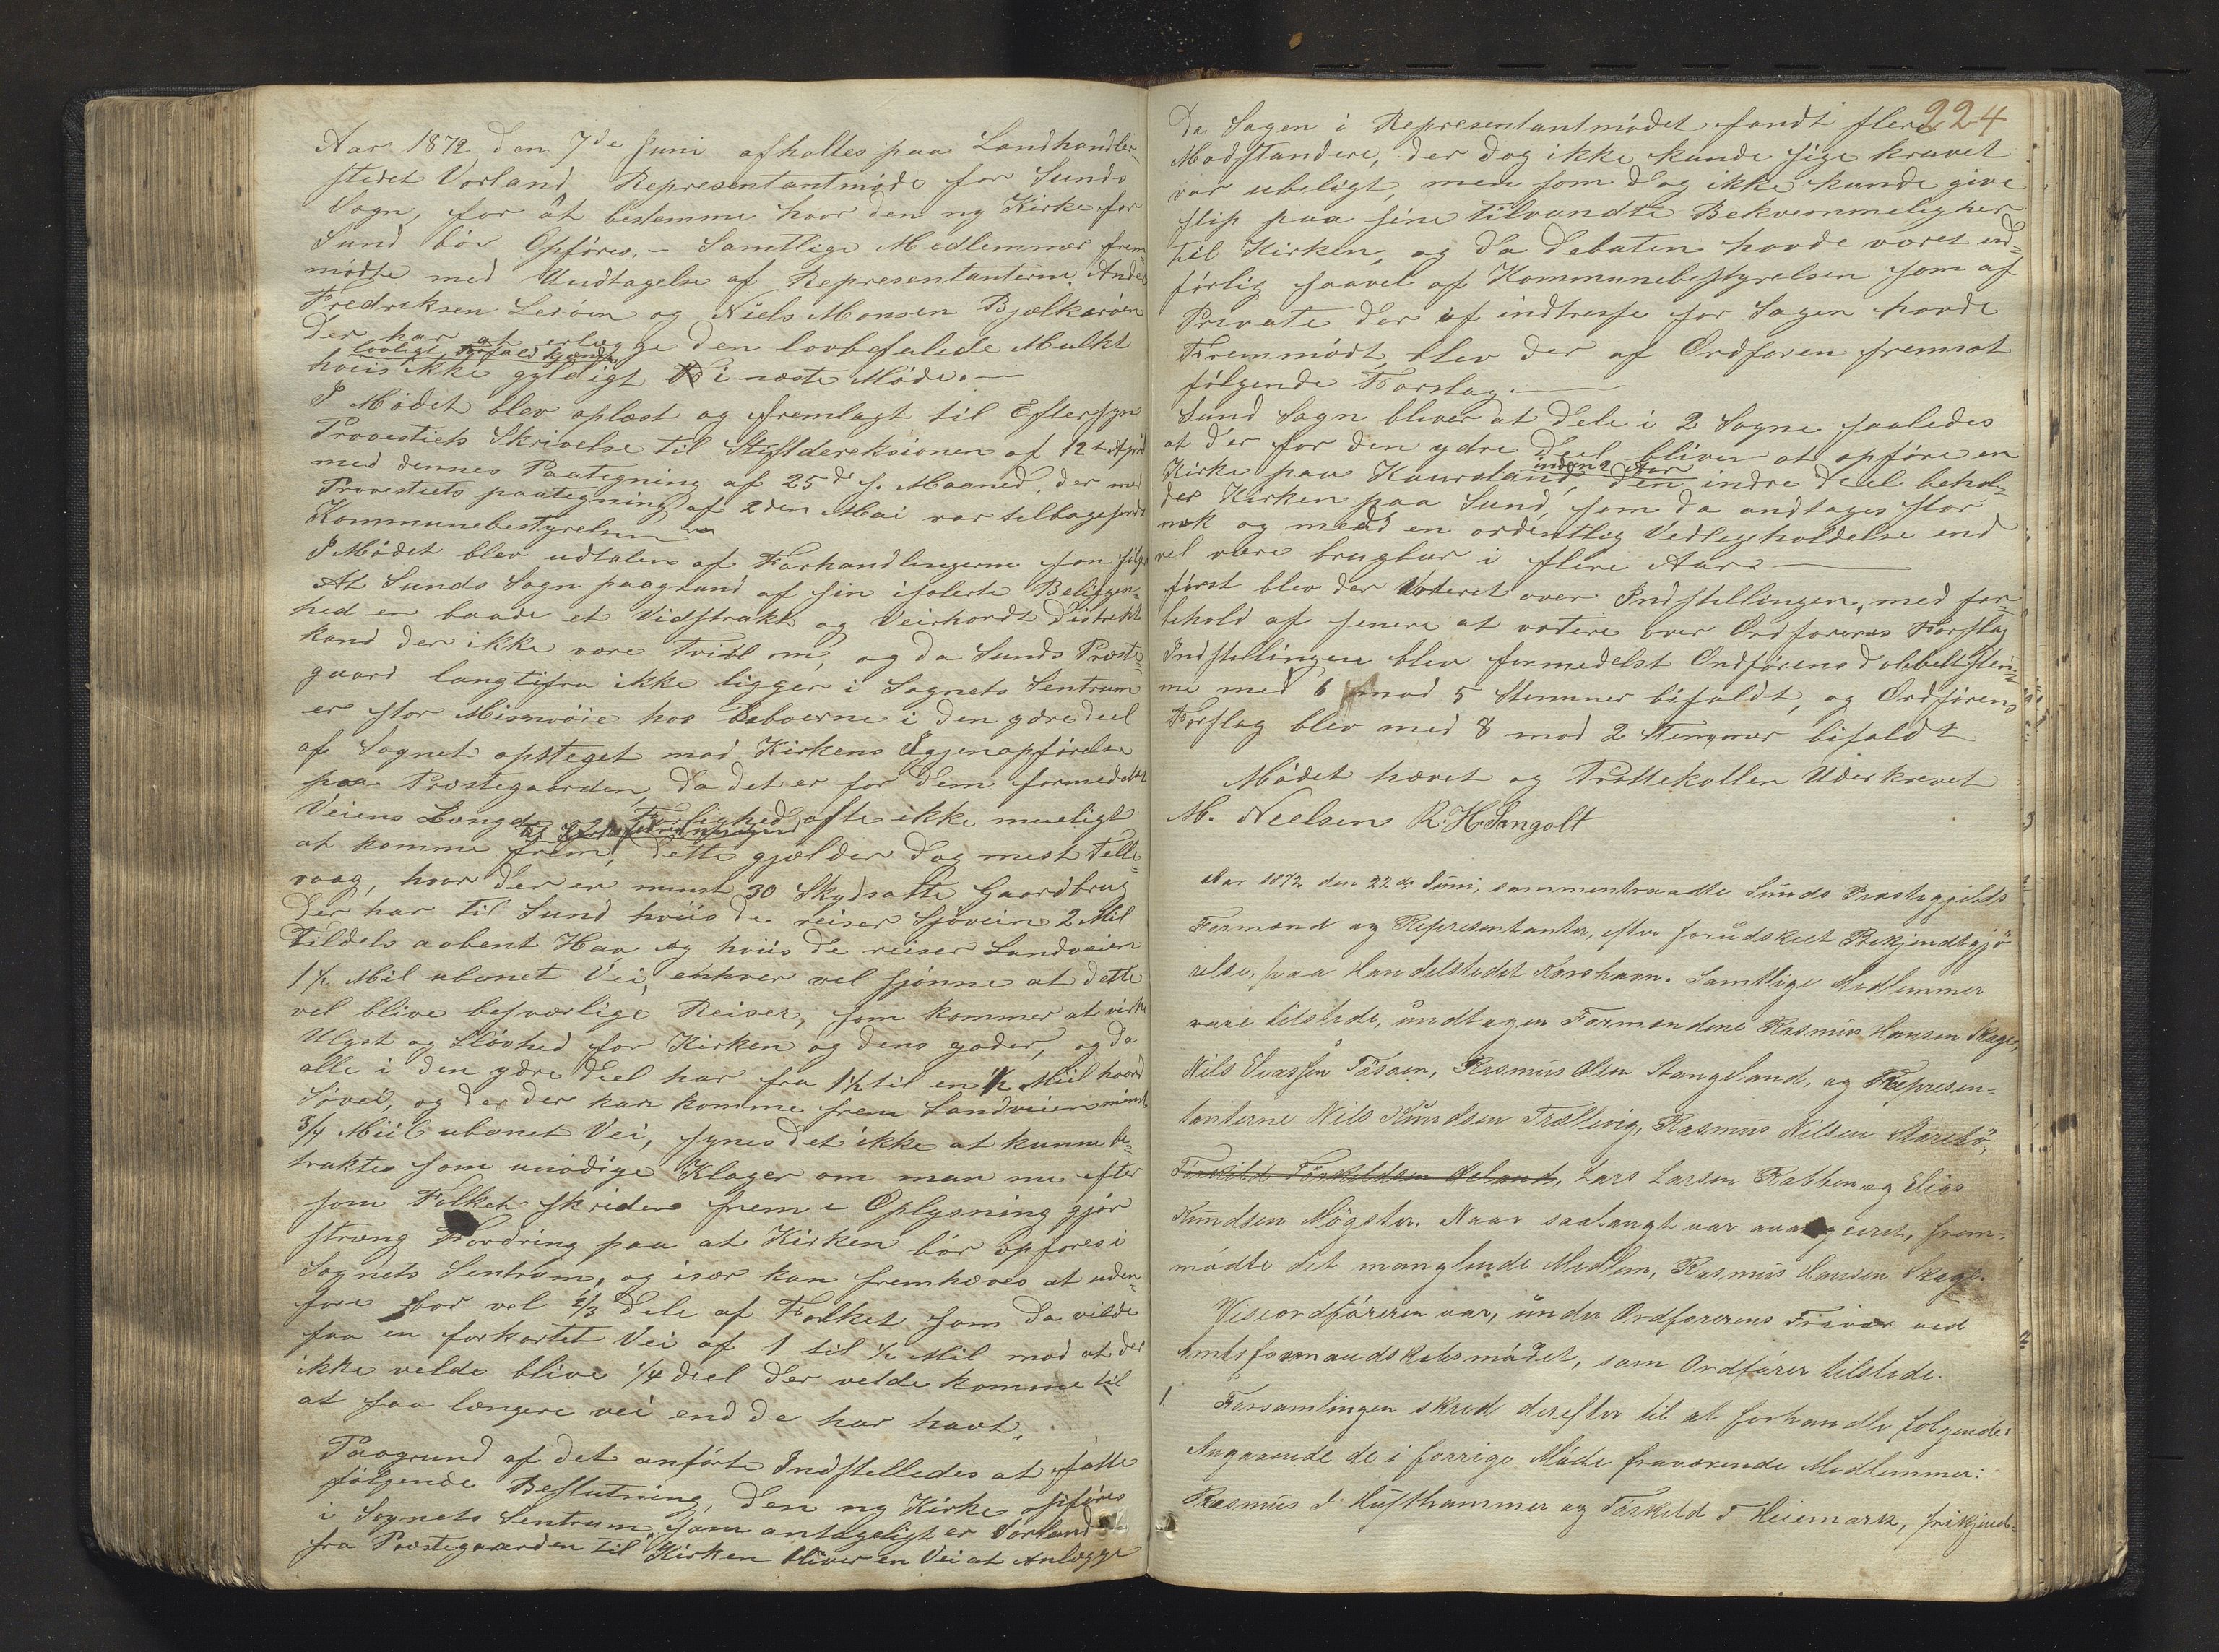 Aar 1872 den 7de Juni afholtes paa Landhandler-
stedet Vorland Representantmøde for Sunds
Sogn, for at bestemme hvor den ny Kirke for
Sund bør Opføres. – Samtlige Medlemmer frem
mødte med Undtagelse af Representanterne Anders
Fredriksen Lerøen og Niels Monsen Bjelkarøen
der har at erlægge den lovbefalede Mulkt
lovligt forfald kjendes
hvis ikke gyldigt i næste Møde. –
I Mødet blev oplæst og fremlagt til Eftersyn
Provestiets Skrivelse til Stiftdereksionen af 12te April
med dennes Paategning af 25de s. Maaned, der med
Provestiets paategning af 2den Mai var tilbagesendt
Kommunebestyrelsen
I Mødet blev udtalen af Forhandlingerne som følger
At Sunds Sogn paagrund af sin isolerte Beliggen-
hed er baade et Vidstrakt og Veirhardt Distrikt
kand der ikke være Tvidl om, og da Sunds Præste-
gaard langtifra ikke ligger i Sognets Sentrum
er stor Misnøie hos Beboerne i den ydre deel
af Sognet opsteget mod Kirkens Igjenopførelse
paa Præstegaarden, da det er for dem formedelst
Veiens Længde og Farlighed ofte ikke mueligt
til Kirkeforretningen
at komme frem, dette gjælder dog mest Telle-
vaag, hvor der er minst 30 Skydsatte Gaardbrug
der har til Sund hviis de reiser Sjøveien 2 Mil
Tildels aabent Hav og hviis de reiser Landveien
1½ Mil ubanet Vei, enhver vel skjønne at dette
vel blive besværlige Reiser, som kommer at virke
Ulyst og Sløvhed for Kirken og dens goder, og da
alle i den ydre deel har fra 1½ til en ½ Miil haard
Søvei, og der der kan komme frem Landveien minst
3/4 Miil ubanet Vei, synes det ikke at kunne be-
traktes som unødige Klager om man nu efter
som Folket skrider frem i Oplysning gjør
streng Fordring paa at Kirken bør opføres i
Sognets Sentrum, og især kan fremhæves at uden-
fore bor vel 2/3 Dele af Folket som da vilde
faa en forkortet Vei af 1 til ½ Mil mod at der
ikke velde blive 1/4 deel der velde komme til
at faa længere vei end de har havt.
Paagrund af det anførte Indstelledes at fatte
følgende Beslutning, den ny Kirke opføres
i Sognets Sentrum, som antageligt er Vorland
fra Præstegaarden til Kirken bliver en Vei at Anlægge
224
Da Sagen i Representantmødet fandt flere
Modstandere, der dog ikke kunde sige kravet
var ubeligt, men som dog ikke kunde give
slip paa sine tilvandte Bekvemmeligher
til Kirken, og da debaten havde været ud-
førlig saavel af Kommunebestyrelsen som af
Private der af indtresse for Sagen havde
Fremmødt, blev der af Ordføren fremsat
følgende Forslag. –
Sund Sogn bliver at dele i 2 Sogne saaledes
at der for den ydre Deel bliver at opføre en
inden 2 Aar
Kirke paa Kaursland, den indre deel behol-
der Kirken paa Sund, som da andtages stor
nok og medd en ordentlig Vedligeholdelse end
vel være brugbar i flere Aar. –
først blev der Voteret over Indstellingen, med for-
behold af senere at votere over Ordførerens Forslag
Indstellingen blev formedelst Ordførens dobbeltstem-
me med 6 mod 5 Stemmer bifaldt, og Ordførens
Forslag blev med 8 mod 2 Stemmer bifaldt
Mødet hævet og Prottekollen Uderskrevet
M. Neelsen R. H. Sangolt
Aar 1872 den 22de Juni, sammentraadte Sunds Præstegjelds
Formænd og Representanter, efter forudskeet Bekjendtgjø-
relse, paa Handelstedet Korshavn. Samtlige Medlemmer
vare tilstede, undtagen Formændene Rasmus Hansen Skage,
Nils Ivarssen Tøsøen, Rasmus Olsen Stangeland, og Represen-
tanterne Nils Knudsen Trællevig, Rasmus Nilsen Aarebø,
Tørkild Tørkildsen Øeland, Lars Larsen Rabben og Elias
Knudsen Møgster. Naar saalangt var avangeret, frem-
mødte det manglende Medlem, Rasmus Hansen Skage.
Viseordføreren var, under Ordførerens Fravær ved
Amtsformandskabsmødet, som Ordfører tilstede.
1 Forsamlingen skred derefter til at forhandle følgende:
Angaaende de i forrige Møde fraværende Medlemmer:
Rasmus J Hufthammer og Tørkild T Heiemark, frikjend-